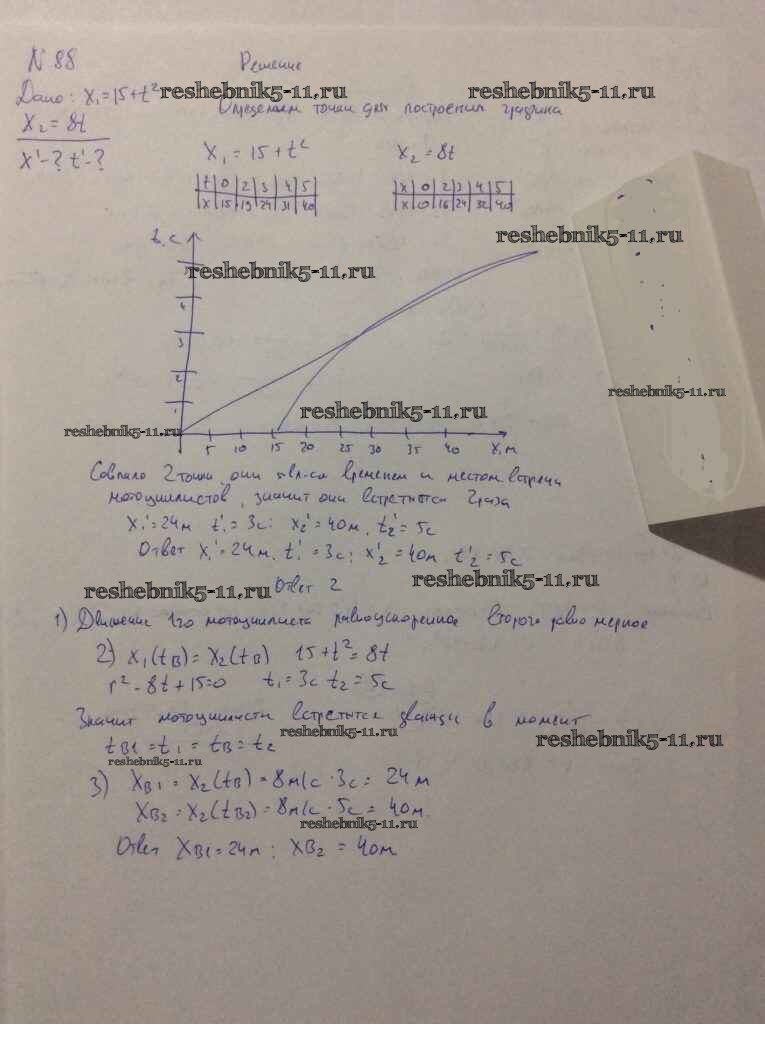 N 88
Решение
Дано: x₁=15+t² reshebnik5-11.ru reshebnik5-11.ru
Определяем точки для построения графика
x₂=8t
x'-? t'-?
x₁=15+t² x₂=8t
t 0 2 3 4 5 x 0 2 3 4 5
x 15 19 24 31 40 x 0 16 24 32 40
t, с reshebnik5-11.ru
reshebnik5-11.ru
4
3
2
reshebnik5-11.ru
1 reshebnik5-11.ru
reshebnik5-11.ru
5 10 15 20 25 30 35 40 x, м
Совпало 2 точки они явл-ся временем и местом встречи
мотоциклистов, значит они встретятся 2 раза
x₁'=24м t₁'=3с; x₂'=40м, t₂'=5с
Ответ x₁'=24м, t₁'=3с; x₂'=40м t₂'=5с
reshebnik5-11.ru Ответ 2 reshebnik5-11.ru
1) Движение 1го мотоциклиста равноускоренное второго равномерное
2) x₁(tв)=x₂(tв) 15+t²=8t
t²-8t+15=0 t₁=3с t₂=5с
Значит мотоциклисты встретятся дважды в момент
reshebnik5-11.ru
tв1=t₁=tв=t₂ reshebnik5-11.ru
reshebnik5-11.ru
3) xв1=x₂(tв)=8м/с·3с=24м
xв2=x₂(tв2)=8м/с·5с=40м.
reshebnik5-11.ru
Ответ xв1=24м; xв2=40м